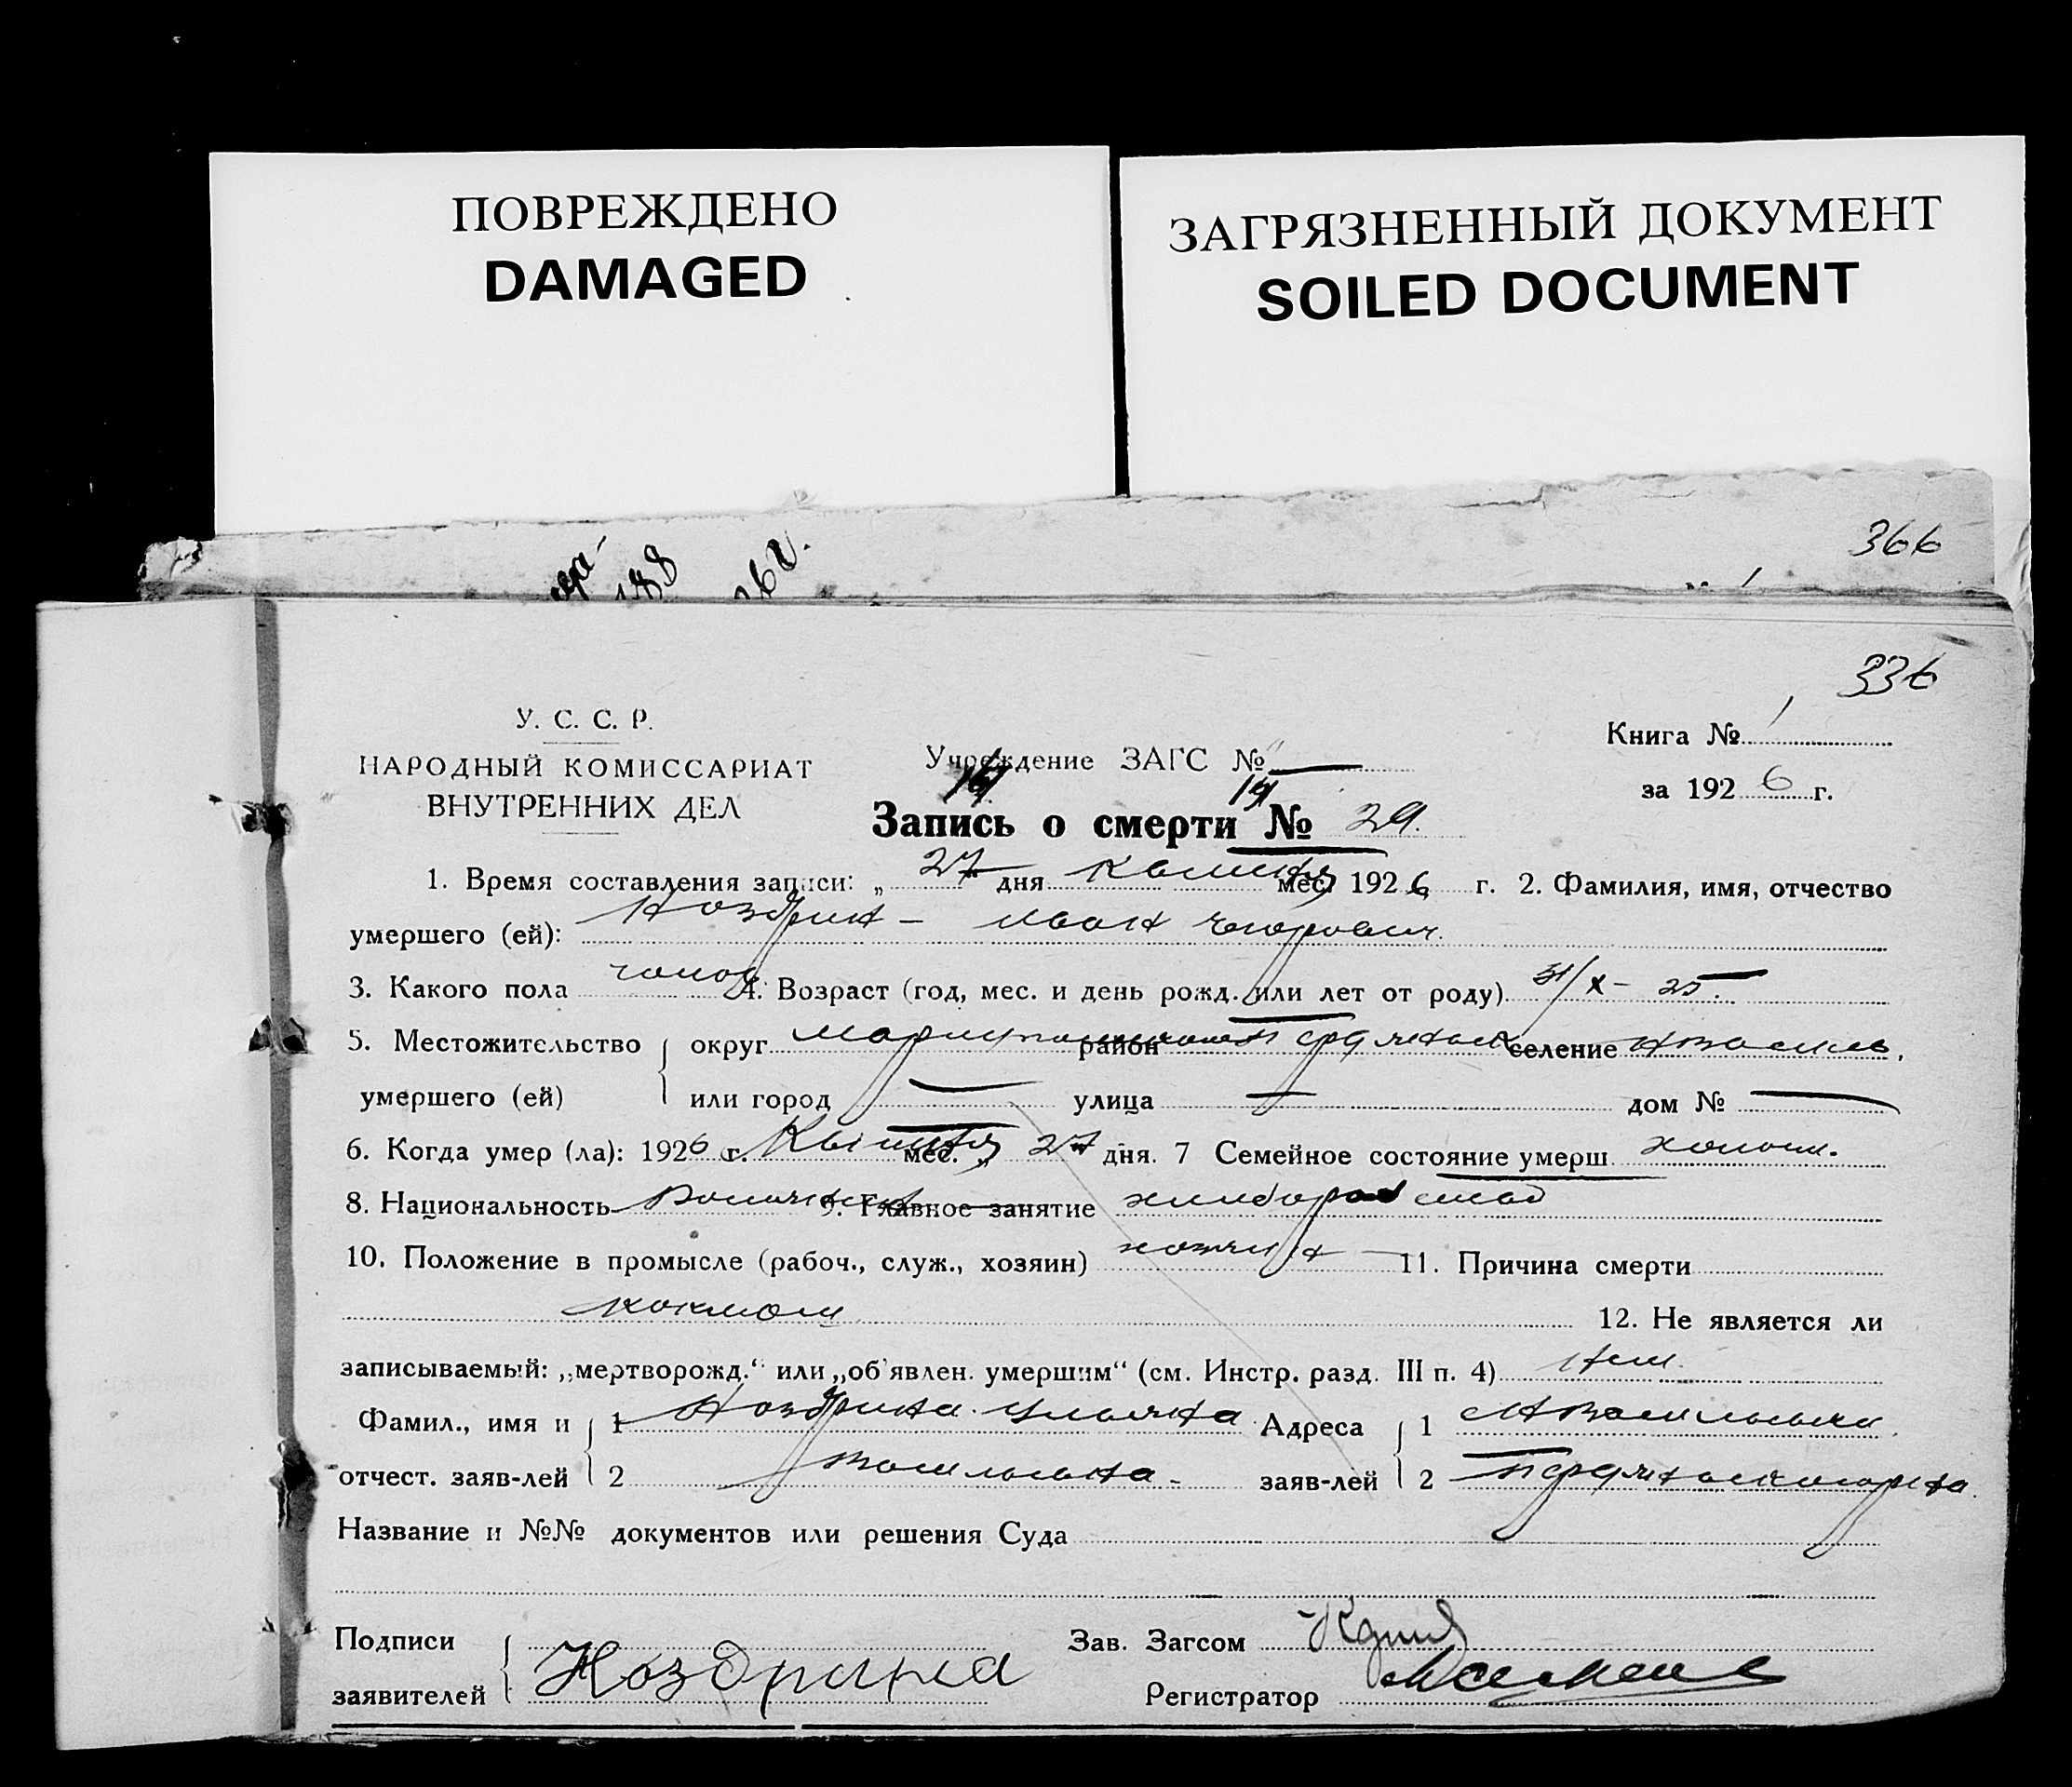 ПОВРЕЖДЕНО
DAMAGED
ЗАГРЯЗНЕННЫЙ ДОКУМЕНТ
SOILED DOCUMENT
366
188
336
У. С. С. Р.
НАРОДНЫЙ КОМИССАРИАТ
ВНУТРЕННИХ ДЕЛ
Учреждение ЗАГС №
Книга № 1
за 1926 г.
Запись о смерти № 29.
1. Время составления записи: „ 27 дня Квітня мес. 1926 г. 2. Фамилия, имя, отчество
умершего (ей): Ноздрин – Иван Егорович.
3. Какого пола чолов. 4. Возраст (год, мес. и день рожд. или лет от роду) 31/X – 25.
5. Местожительство округ район селение
умершего (ей) или город — улица — дом № —
6. Когда умер (ла): 1926 г. Квітня мес. „ 27 дня. 7 Семейное состояние умерш. холост.
8. Национальность 9. Главное занятие хлібороб
10. Положение в промысле (рабоч., служ., хозяин) 11. Причина смерти
коклюш
12. Не является ли
записываемый: „мертворожд.“ или „об'явлен. умершим“ (см. Инстр. разд. III п. 4)
Фамил., имя и 1 Ноздрина Ульяна Адреса 1
отчест. заяв-лей 2 заяв-лей 2
Название и №№ документов или решения Суда
Подписи
заявителей Ноздрина
Зав. Загсом
Регистратор